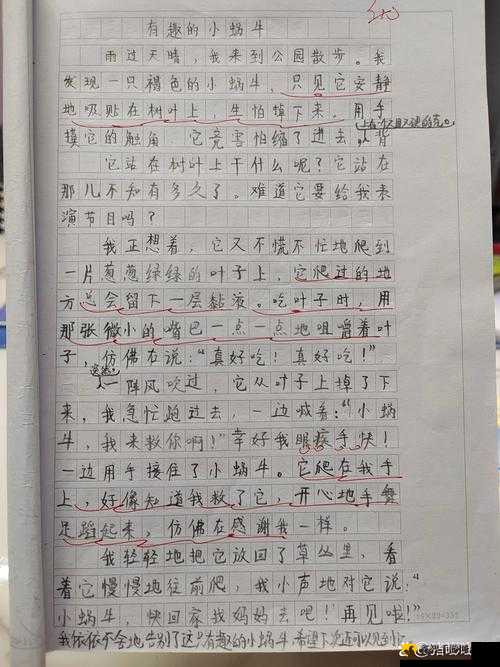 优
有趣的小蜗牛
雨过天晴，我来到公园散步。我
发现一只褐色的小蜗牛，只见它安静
地吸贴在树叶上，生怕掉下来。用手
上有个又大又硬的壳。
摸它的触角，它竟害怕缩了进去，背
它站在树叶上干什么呢？它站在
那儿不知有多久了。难道它要给我来
演节目吗？
我正想着，它又不慌不忙地爬到
一片葱葱绿绿的叶子上，它爬过的地
方总会留下一层黏液。吃叶子时，用
那张微小的嘴巴一点一点地咀嚼着叶
子，仿佛在说：“真好吃！真好吃！”
一阵风吹过，它从叶子上掉了下
来，我急忙跑过去，一边喊着：“小蜗
牛，我来救你啊！”幸好我眼疾手快！
一边用手接住了小蜗牛。它爬在我手
上，好像知道我救了它，开心地手舞
足蹈起来，仿佛在感谢我一样。
我轻轻地把它放回了草丛里，看
着它慢慢地往前爬，我小声地对它说：“
小蜗牛，快回家找妈妈去吧！再见啦！”
我依依不舍地告别了这只有趣的小蜗牛，希望下次还可以见到它